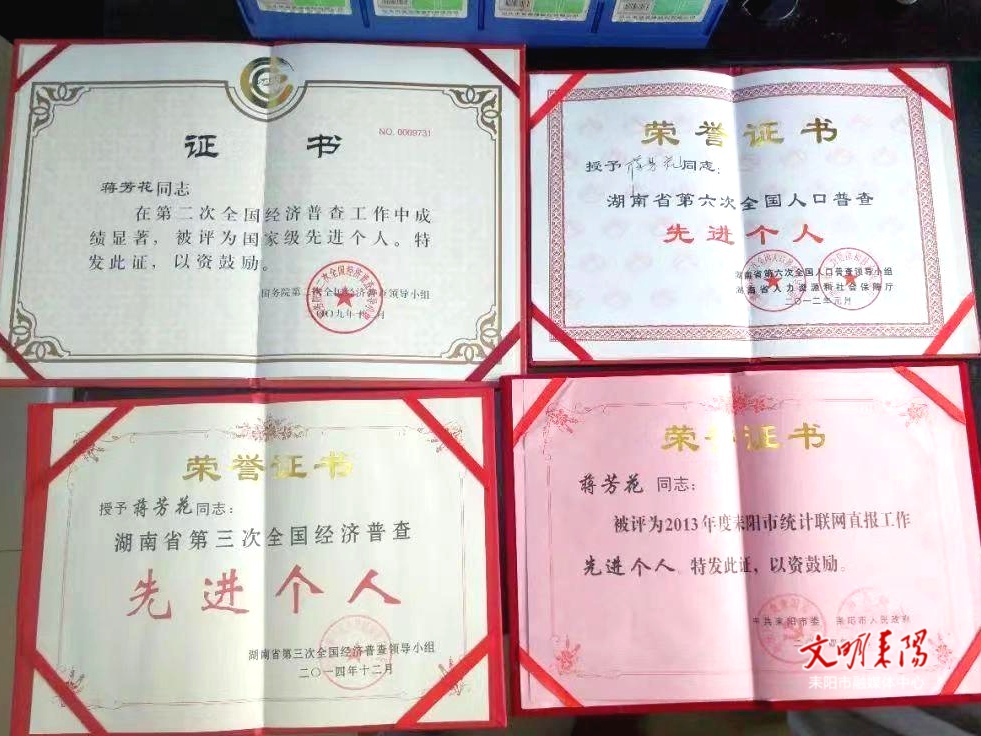 证 书
NO. 0009731
蒋芳花同志
在第二次全国经济普查工作中成
绩显著，被评为国家级先进个人。特
发此证，以资鼓励。
国务院第二次全国经济普查领导小组
荣誉证书
授予蒋芳花同志：
湖南省第六次全国人口普查
先进个人
湖南省第六次全国人口普查领导小组
湖南省人力资源和社会保障厅
二〇一二年元月
荣誉证书
授予蒋芳花同志：
湖南省第三次全国经济普查
先进个人
湖南省第三次全国经济普查领导小组
二〇一四年十二月
荣誉证书
蒋芳花 同志：
被评为2013年度耒阳市统计联网直报工作
先进个人 特发此证，以资鼓励。
中共耒阳市委 耒阳市人民政府
文明耒阳
耒阳市融媒体中心